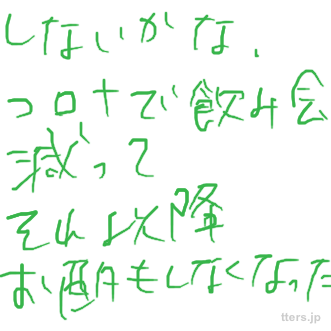 しないかな、
コロナで飲み会
減って
それ以降
お酌もしなくなった
tters.jp